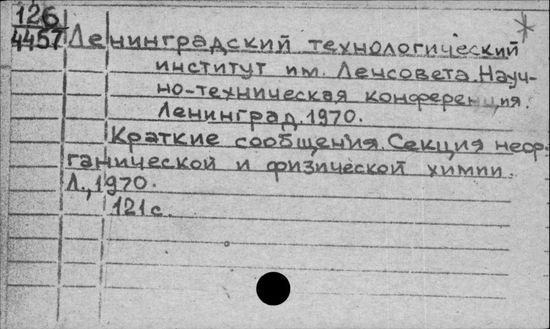 126
4457 Ленинградский технологический
институт им. Ленсовета. Науч-
но-техническая конференция.
Ленинград. 1970.
Краткие сообщения. Секция неор-
ганической и физической химии.
Л., 1970.
121 с.